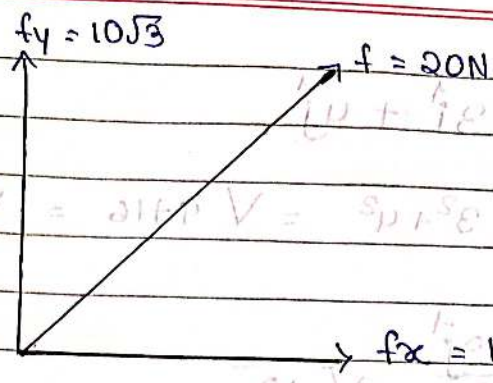 fy = 10√3
f = 20N
fx = 1